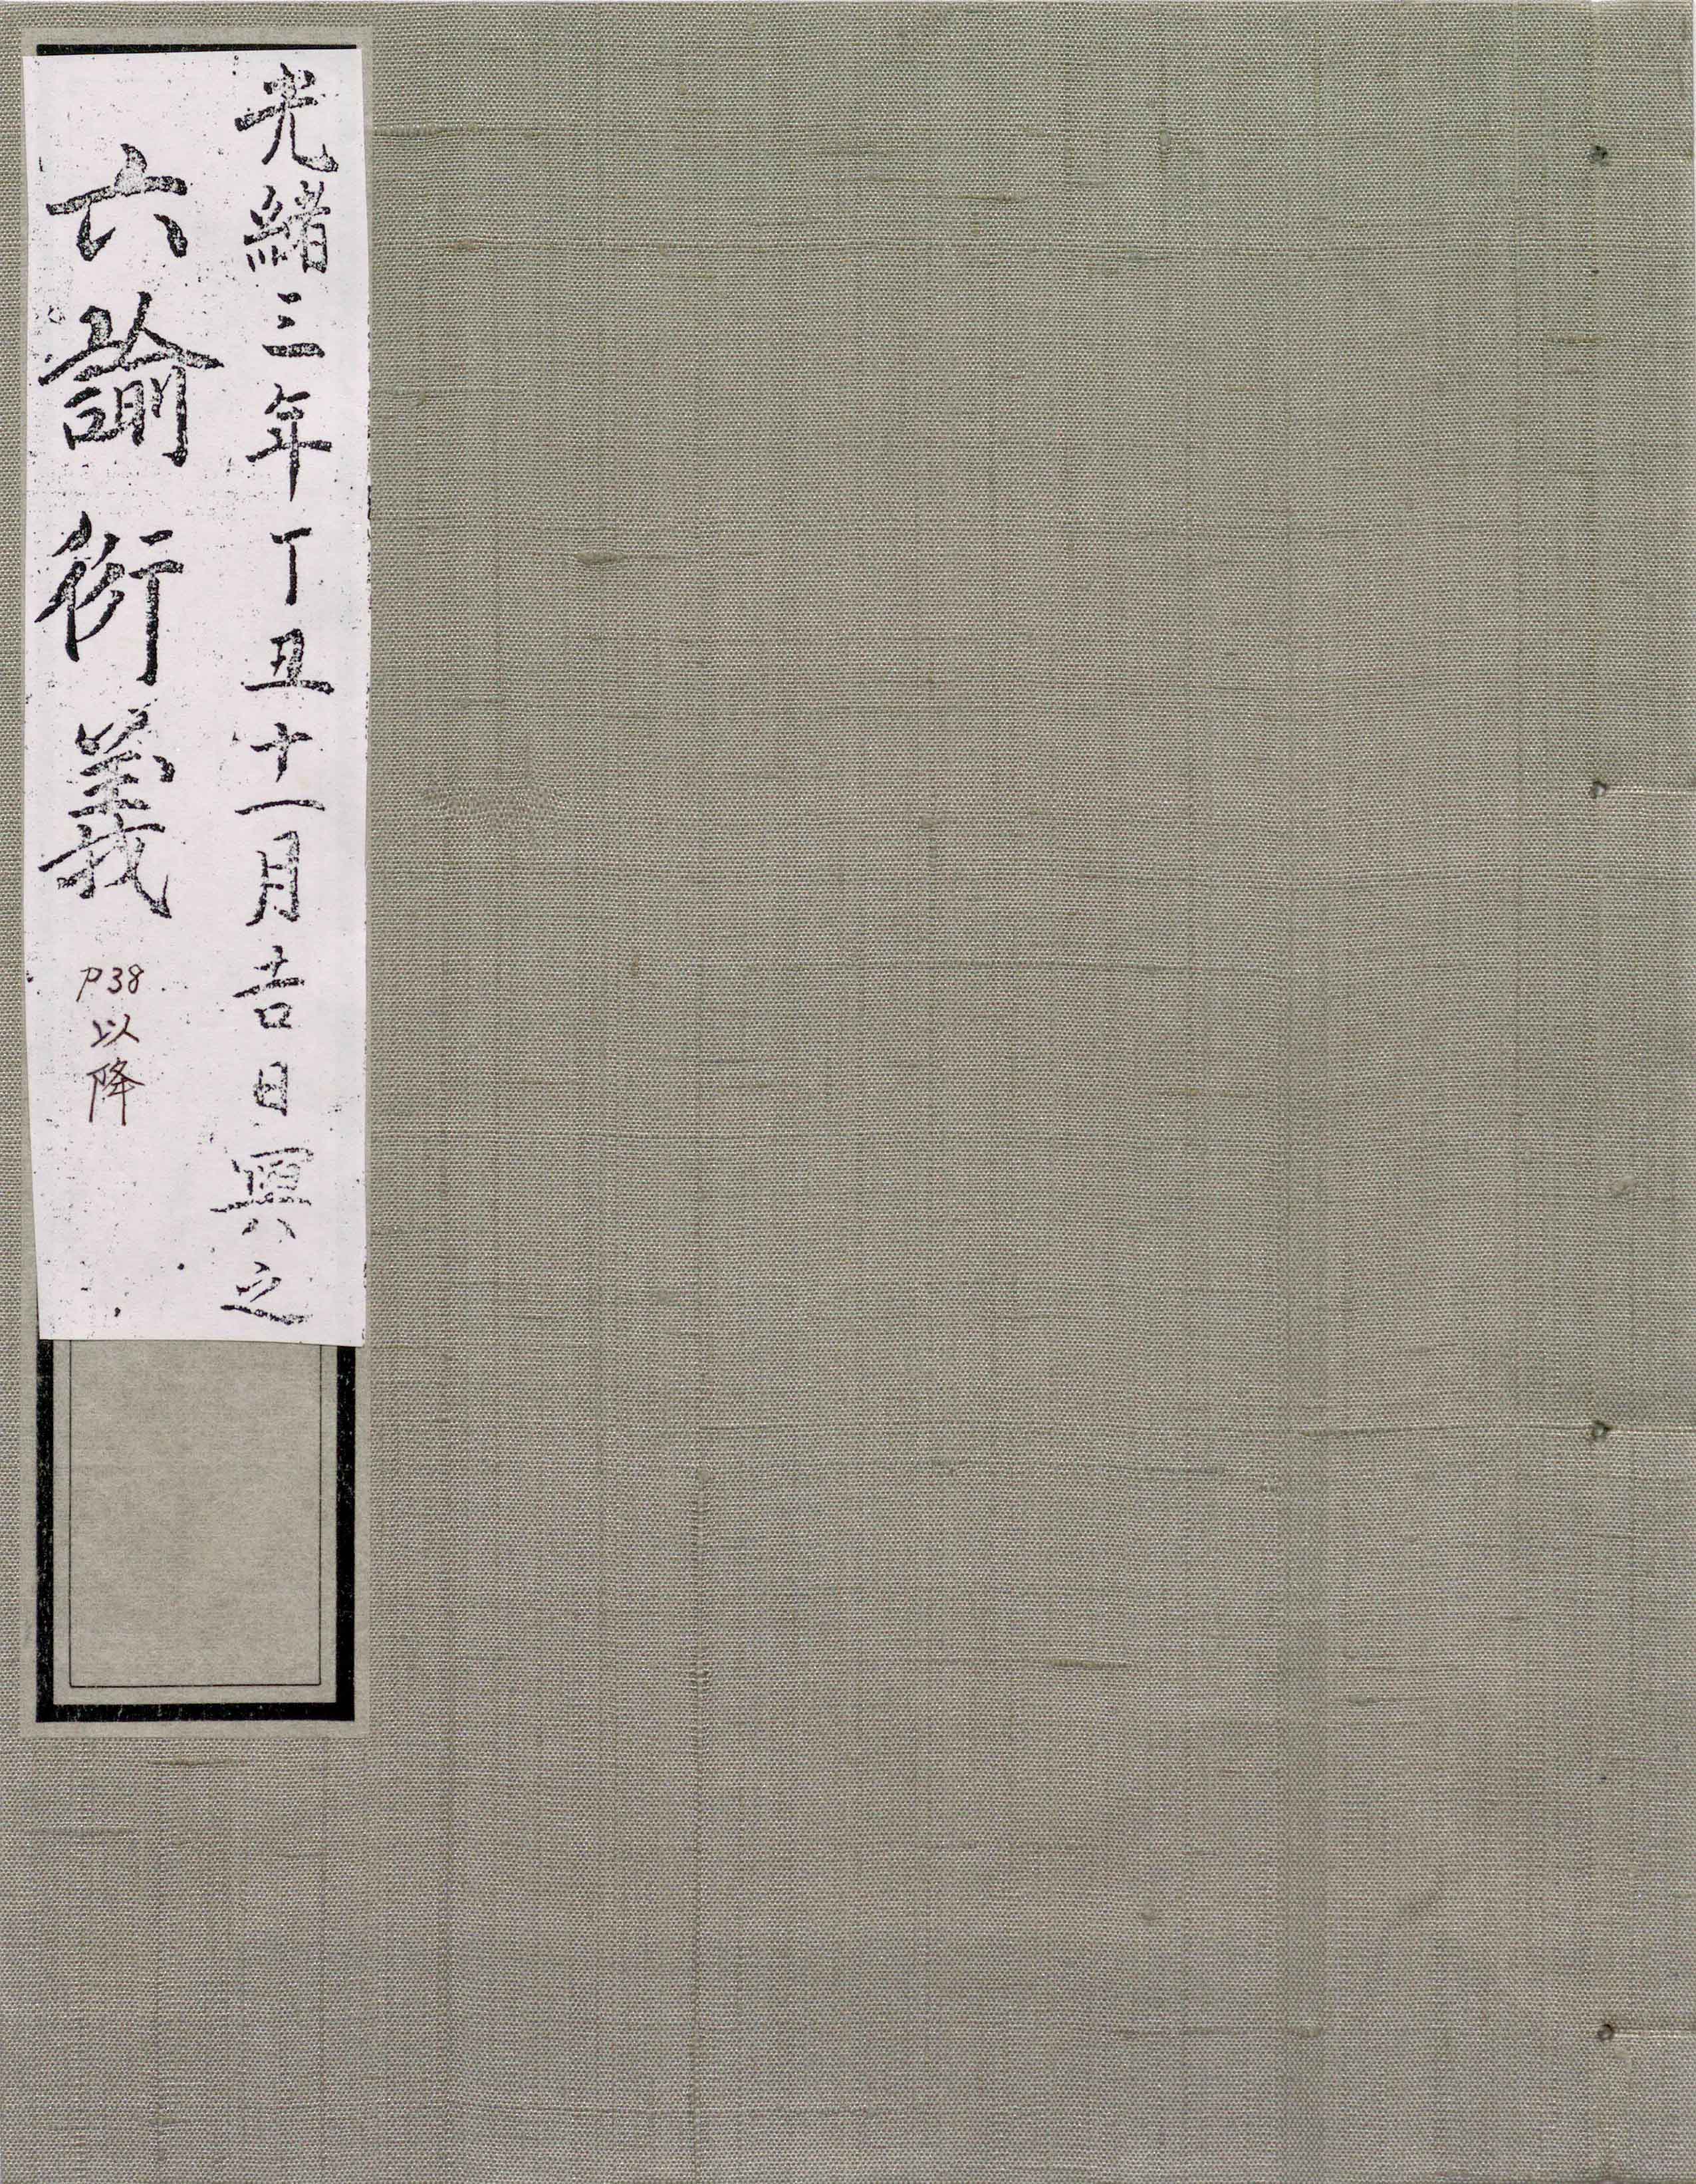 光緒三年丁丑十一月吉日置之
六諭衍義
P38
以
降